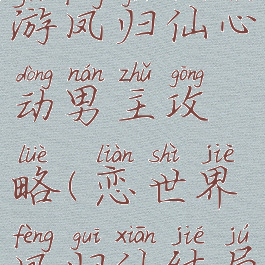 游凤归仙心
dòng nán zhǔ gōng
动男主攻
lüè liàn shì jiè
略(恋世界
fèng guī xiān jié jú
凤归仙结局